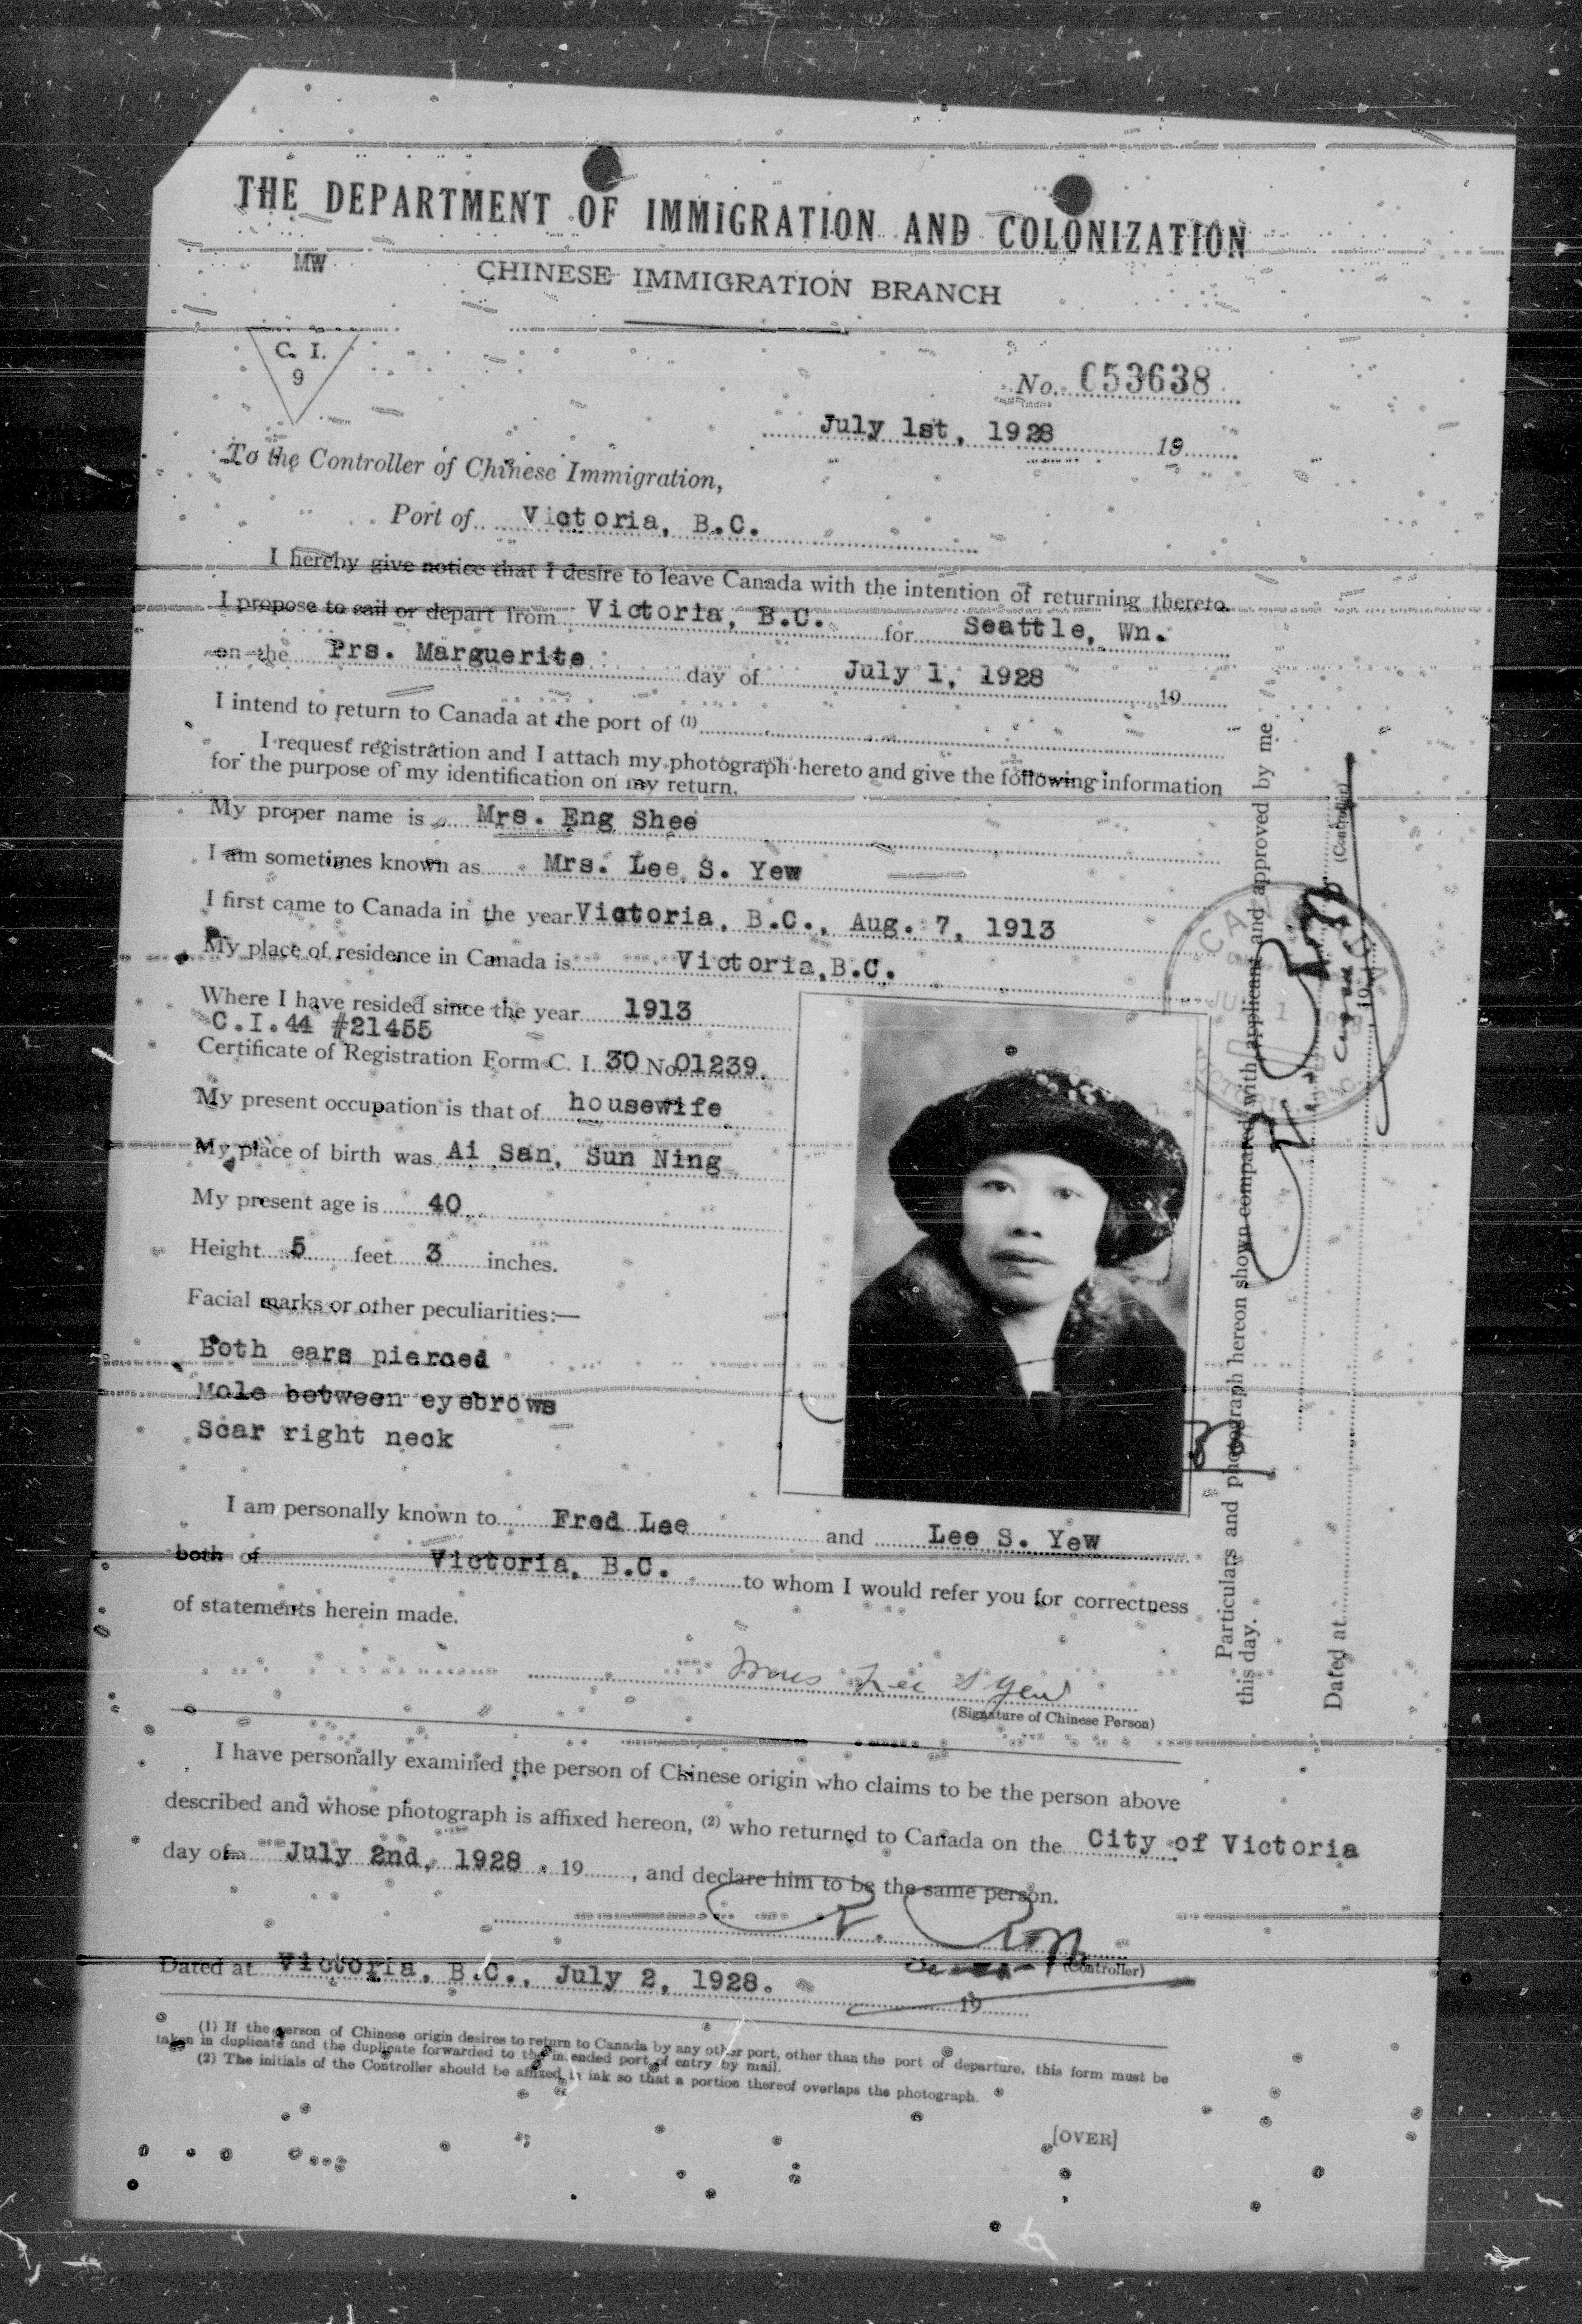 THE DEPARTMENT OF IMMIGRATION AND COLONIZATION
MW
CHINESE IMMIGRATION BRANCH
C. I.
9
No. C53638
July 1st, 1928 19
To the Controller of Chinese Immigration,
Port of Victoria, B.C.
I hereby give notice that I desire to leave Canada with the intention of returning thereto.
I propose to sail or depart from Victoria, B.C. for Seattle, Wn.
on the Prs. Marguerite day of July 1, 1928 19
I intend to return to Canada at the port of (1)
I request registration and I attach my photograph hereto and give the following information
for the purpose of my identification on my return.
My proper name is Mrs. Eng Shee
I am sometimes known as Mrs. Lee S. Yew
I first came to Canada in the year Victoria, B.C., Aug. 7, 1913
My place of residence in Canada is Victoria, B.C.
Where I have resided since the year 1913
C.I.44 #21455
Certificate of Registration Form C. I. 30 No 01239.
My present occupation is that of housewife
My place of birth was Ai San, Sun Ning
My present age is 40
Height 5 feet 3 inches.
Facial marks or other peculiarities:—
Both ears pierced
Mole between eyebrows
Scar right neck
I am personally known to Fred Lee and Lee S. Yew
both of Victoria, B.C. to whom I would refer you for correctness
of statements herein made.
Mrs Lee S Yew
(Signature of Chinese Person)
I have personally examined the person of Chinese origin who claims to be the person above
described and whose photograph is affixed hereon, (2) who returned to Canada on the City of Victoria
day of July 2nd, 1928 . 19 , and declare him to be the same person.
(Controller)
Dated at Victoria, B.C., July 2, 1928.
19
(1) If the person of Chinese origin desires to return to Canada by any other port, other than the port of departure, this form must be
taken in duplicate and the duplicate forwarded to the intended port of entry by mail.
(2) The initials of the Controller should be affixed in ink so that a portion thereof overlaps the photograph.
[OVER]
Particulars and photograph hereon shown compared with applicant and approved by me
this day.
(Controller)
Dated at 19